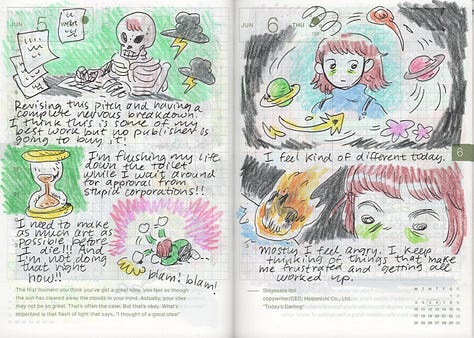 JUN 5
Revising this pitch and having a
complete nervous breakdown.
I think this is some of my
best work but no publisher is
going to buy it!
I'm flushing my life
down the toilet
while I wait around
for approval from
stupid corporations!!
I need to make
as much art as
possible before
I die!! And
I'm not doing
that right
now!!
blam! blam!
The first moment you think you've got a great idea, you feel as though
the sun has cleared away the clouds in your mind. Actually, your idea
may not be so great. That's often the case. But that's okay. What's
important is that flash of light that says, "I thought of a good idea!"
JUN 6
I feel kind of different today.
6
mostly I feel angry. I keep
thinking of things that make
me frustrated and getting all
worked up.
Shigesato Itoi
copywriter/CEO, Hobonichi Co., Ltd.
"Today's Darling"